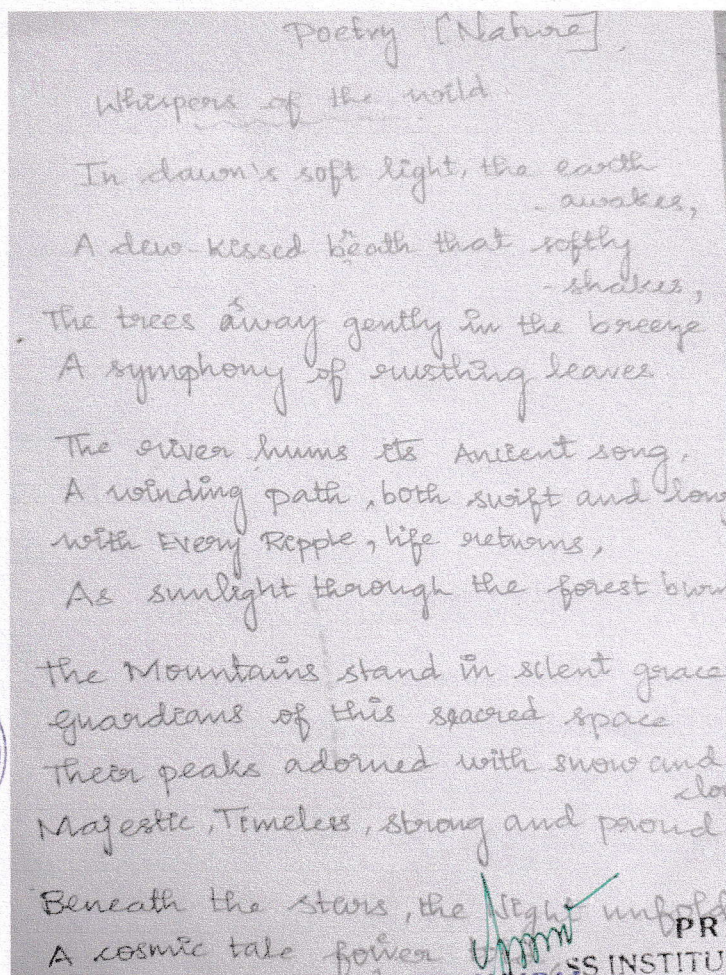 Poetry [Nature]
Whispers of the wild
In dawn's soft light, the earth
- awakes,
A dew-kissed beath that softly
- shakes,
The trees sway gently in the breeze
A symphony of rusthing leaves
The river hums its Ancient song.
A winding path, both swift and lon
with Every Ripple, life returns,
As sunlight through the forest burn
The Mountains stand in silent grace
Guardians of this sacred space
Their peaks adorned with snow and
clou
Majestic, Timeless, strong and proud
Beneath the stars, the Night unfold
A cosmic tale
PR
SS INSTITU